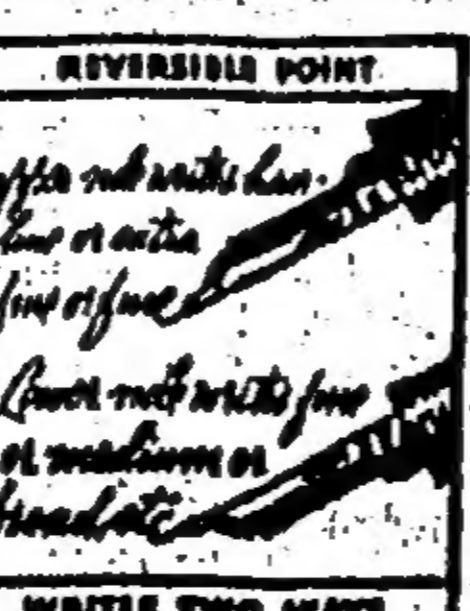 REVERSIBLE POINT
nib writes
fine or extra
fine or fine
Lower nib writes fine
or medium or
broad etc.
WRITES TWO WAYS